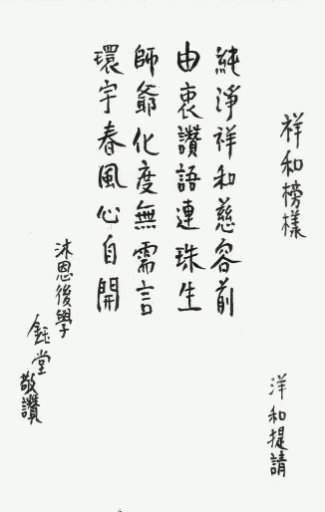 祥和榜樣
洋和提請
純淨祥和慈容前
由衷讚語連珠生
師爺化度無需言
環宇春風心自開
沐恩後學
鈺堂敬讚